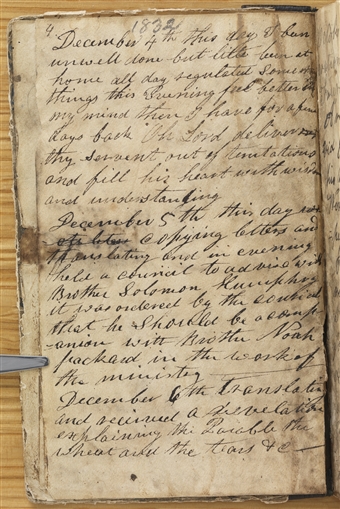 4 1832
December 4th this day I been
unwell done but little been at
home all day regulated some
things this Evening feel better in
my mind then I have for a few
days back Oh Lord deliver
thy servent out of temtations
and fill his heart with wisdom
and understanding
December 5th this day
copying letters and
translating and in evening
held a council to advise with
Brother Solomon Humphry
it was ordered by the council
that he should be a comp
anion with Brother Noah
packard in the work of
the ministry
December 6th translating
and received a revelation
explaining the Parable the
wheat and the tears &c